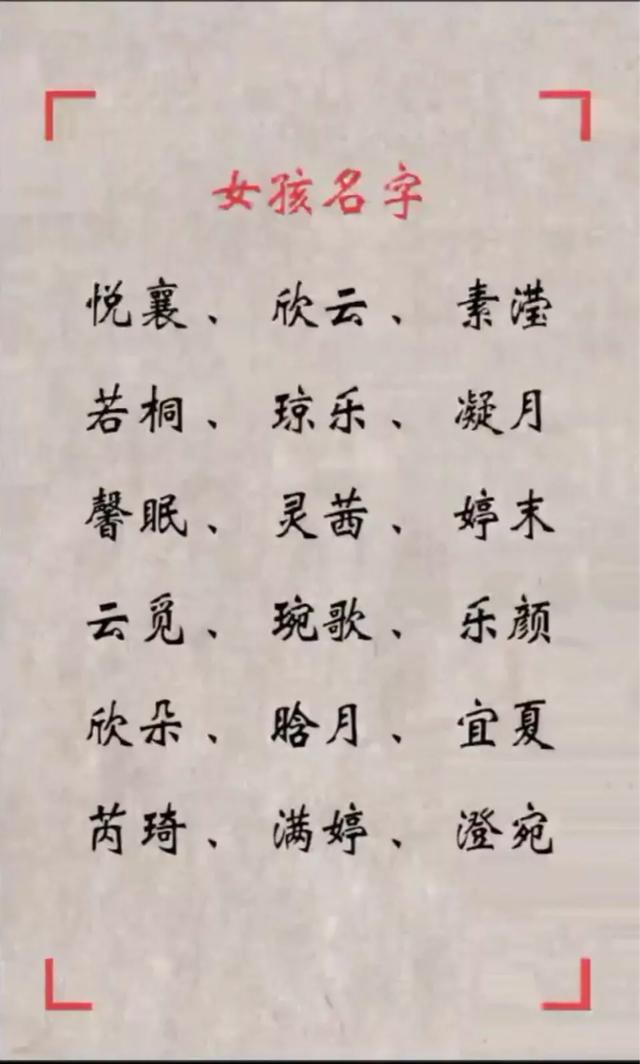 女孩名字
悦襄、欣云、素滢
若桐、琼乐、凝月
馨眠、灵茜、婷末
云觅、琬歌、乐颜
欣朵、晗月、宜夏
芮琦、满婷、澄宛